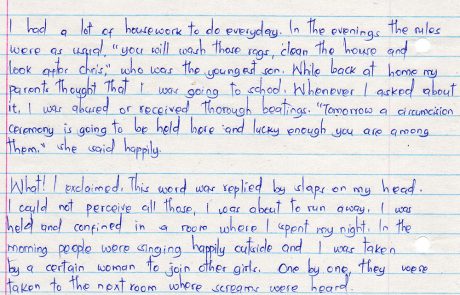 I had a lot of housework to do everyday. In the evenings the rules
were as usual, "you will wash those rags, clean the house and
look after Chris," who was the youngest son. While back at home my
parents thought that I was going to school. Whenever I asked about
it, I was abused or received thorough beatings. "Tomorrow a circumcision
ceremony is going to be held here and lucky enough you are among
them." she said happily.
What! I exclaimed. This word was replied by slaps on my head.
I could not perceive all those, I was about to run away. I was
held and confined in a room where I spent my night. In the
morning people were singing happily outside and I was taken
by a certain woman to join other girls. One by one, they were
taken to the next room where screams were heard.